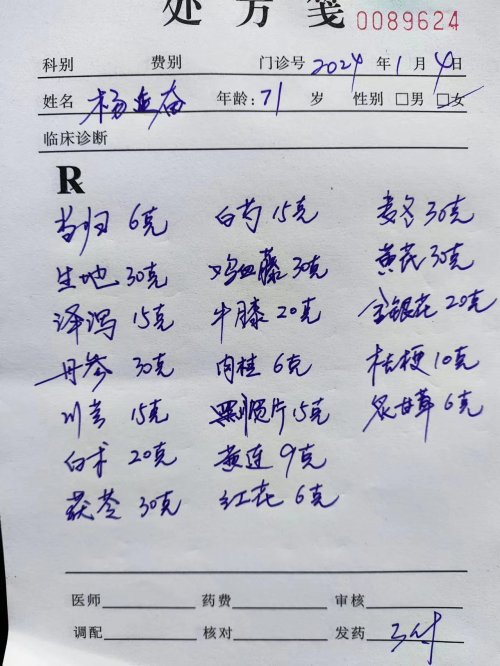 处方笺 0089624
科别 费别 门诊号 2024年1月4日
姓名 杨 奋 年龄:71岁 性别 □男 □女
临床诊断
R
当归 6克 白芍 15克 麦冬 30克
生地 30克 鸡血藤 30克 黄芪 30克
泽泻 15克 牛膝 20克 金银花 20克
丹参 30克 肉桂 6克 桔梗 10克
川芎 15克 黑顺片 15克 炙甘草 6克
白术 20克 黄连 9克
茯苓 30克 红花 6克
医师 药费 审核
调配 核对 发药